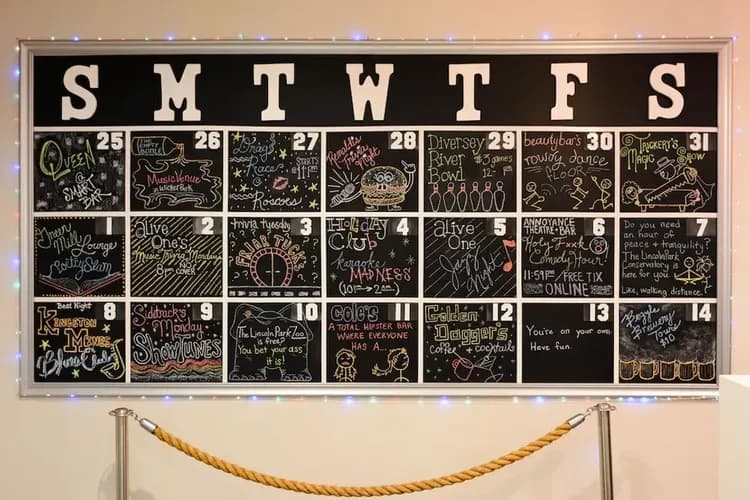 S M T W T F S
25
QUEEN
@
SMART
BAR
26
THE EMPTY
BOTTLE
Music Venue
in Wicker Park
27
Drag
Races
STARTS
@ 11PM
Roscoes
28
Trivia
Night
29
Diversey
River
Bowl
$3 games
12-
pm
30
beautybar's
rowdy dance
FLOOR
31
TRICKERY'S
MAGIC SHOW
1
Green
Mill
Lounge
Poetry Slam
2
alive
One's
Music Thing Mondays
8pm
COVER
3
trivia tuesday
@
4
HOLIDAY
Club
karaoke
MADNESS
(10pm → 2am)
5
alive
One
Jazz Night
6
ANNOYANCE
THEATRE + BAR
Holy Fxxk
Comedy Hour!
11:59PM FREE TIX
ONLINE
7
Do you need
an hour of
peace + tranquility?
The Lincoln Park
Conservatory is
here for you.
Like, walking distance.
8
Beat Night
KINGSTON
MINES
Blues
9
Sidetrack's
Monday
SHOWTUNES
10
The Lincoln Park Zoo
is free?
You bet your ass
it is!
11
Cole's
A TOTAL HIPSTER BAR
WHERE EVERYONE
HAS A...
12
Golden
Dagger's
coffee + cocktails
13
You're on your own.
Have fun.
14
Brewery
Tours
$10